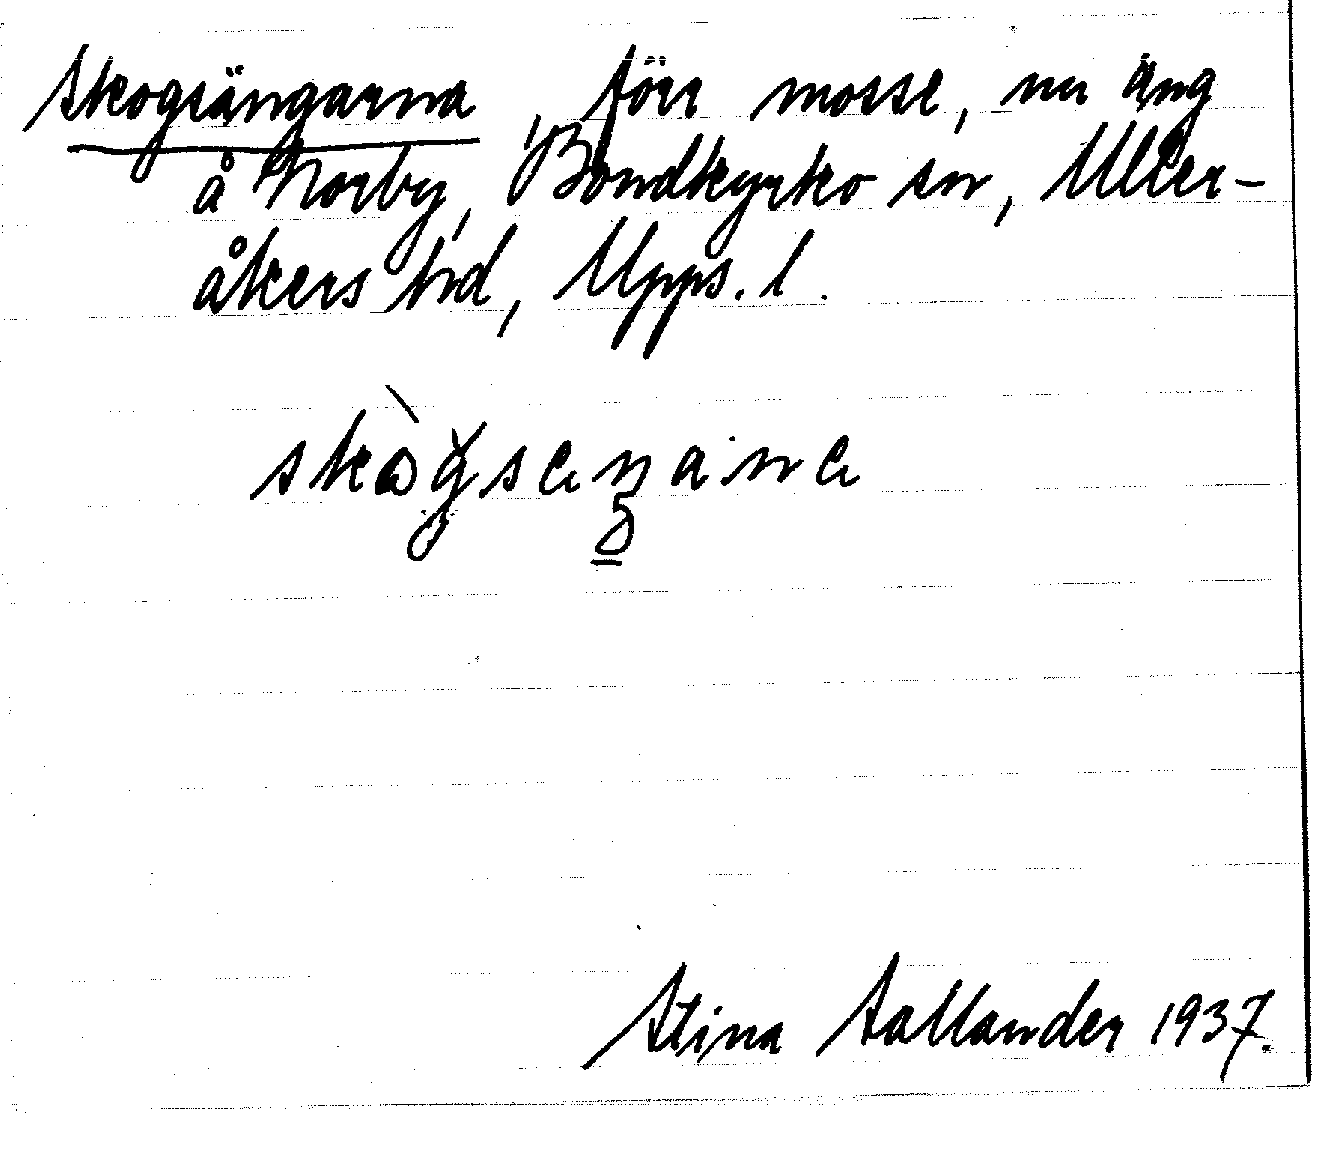 Skogsängarna, förr mosse, nu äng
å Norby, Bondkyrko sn, Uller-
åkers hd, Upps. l.
Stina Sallander 1937.